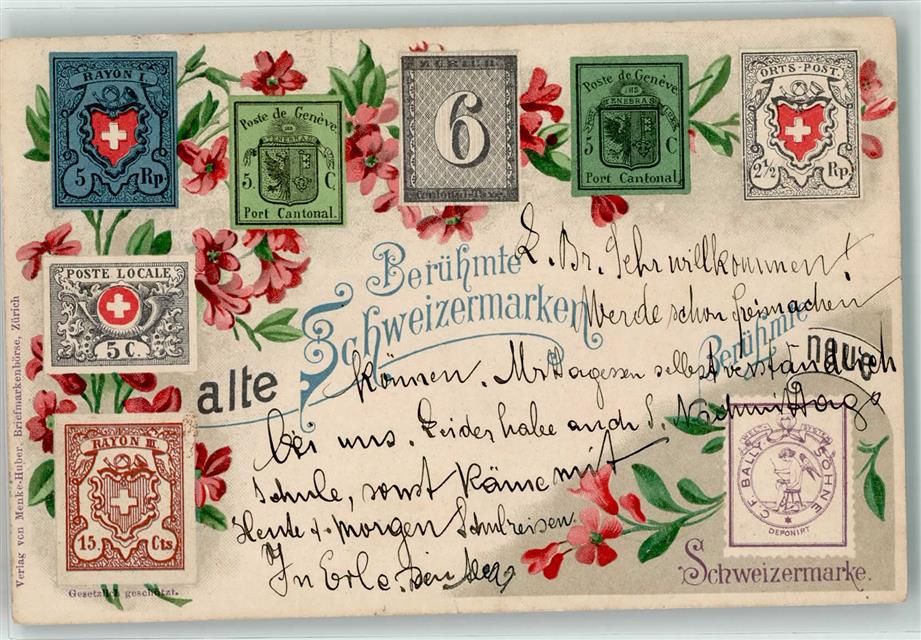 RAYON I.
5 Rp.
Poste de Genève
POST TENEBRAS LUX
5. C.
Port Cantonal.
ZÜRICH
6
Cantonal-Taxe.
Poste de Genève
5 C.
Port Cantonal.
ORTS-POST.
2½ Rp.
POSTE LOCALE
5 C.
RAYON III.
15. Cts
Gesetzlich geschützt.
Verlag von Menke-Huber, Briefmarkenbörse, Zürich
Berühmte
Schweizermarken
alte
Berühmte
neue
C.F. BALLY SÖHNE
DEPONIRT
Schweizermarke.
L. Br. Sehr willkommen!
Werde schon freimachen
können. Mittagessen selbstverständlich
bei uns. Leider habe auch d. Nachmittag
Schule, sonst käme mit
Heute & morgen Schulreisen.
In Erle. Dein